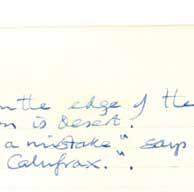 on the edge of the
is desert.
a mistake" says
Calufrax.".